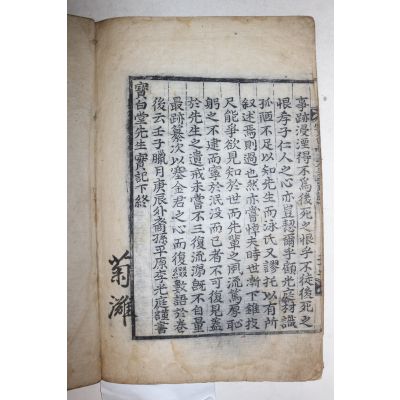 事跡浸湮得不爲後死之恨乎不徒後死之
恨孝子仁人之心亦豈恝爾乎顧光庭材識
孤陋不足以知先生而泳氏又謬托以有所
叙述焉則過也然亦嘗悼夫時世漸下錐技
尺能爭欲見知於世而先輩之風流篤厚恥
躬之不逮而寧於泯没而已者不可復見益
於先生之遺戒未嘗不三復流涕旣不自量
最跡纂次以塞金君之心而復綴數語於卷
後云壬子臘月庚辰外裔孫平原李光庭謹書
寶白堂先生實記下終
菊灘